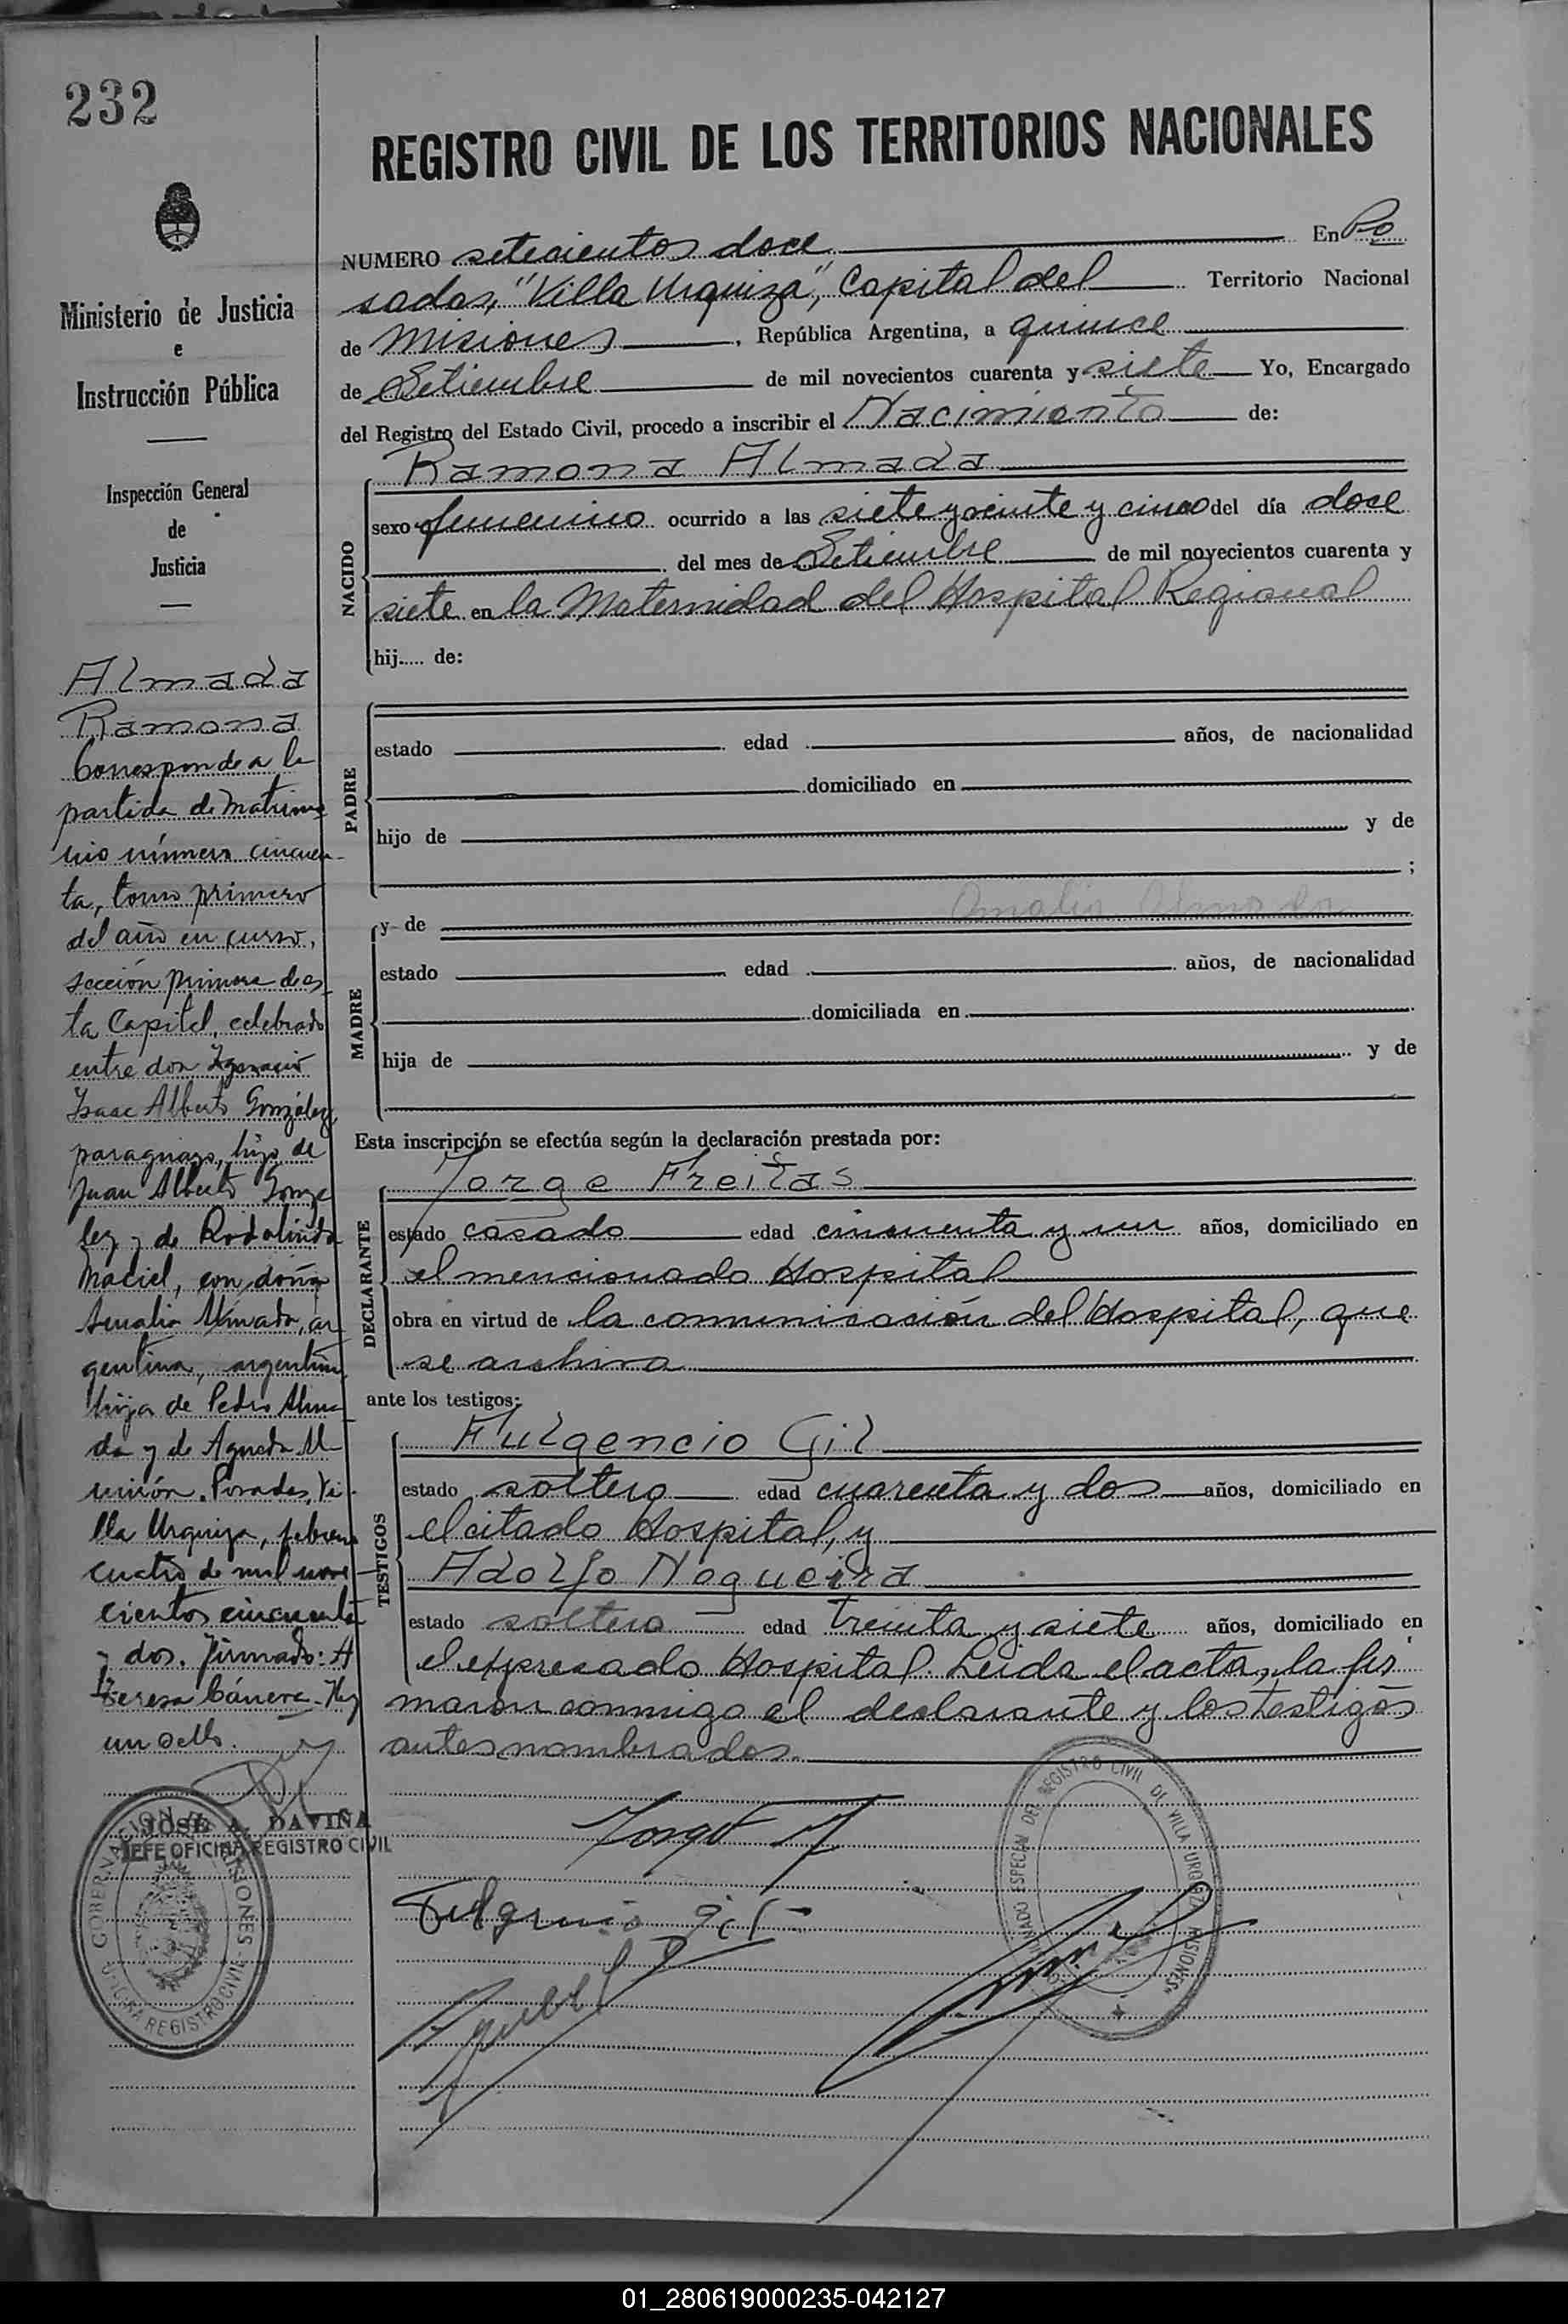 232
REGISTRO CIVIL DE LOS TERRITORIOS NACIONALES
Ministerio de Justicia
e
Instrucción Pública
Inspección General
de
Justicia
Almada
Ramona
Corresponde a la
partida de Matrimo
nio número cincuen-
ta, tomo primero
del año en curso,
sección primera de es_
ta Capital, celebrado
entre don Ignacio
Isaac Alberto González,
paraguayo, hijo de
Juan Alberto Gonza
lez y de Rodolinda
Maciel, con doña
Amalia Almada, ar
gentina, argentina,
hija de Pedro Alma_
da y de Agueda
Posadas, Vi-
lla Urquiza, febrero
cuatro de mil nove_
cientos cincuenta
y dos. Firmado: A
Teresa Hay
un sello.
JOSE A. DAVIÑA
JEFE OFICINA REGISTRO CIVIL
GOBERNACION DE MISIONES
OFICINA REGISTRO CIVIL
NUMERO setecientos doce En Po
sadas, "Villa Urquiza", Capital del Territorio Nacional
de Misiones, República Argentina, a quince
de Setiembre de mil novecientos cuarenta y siete Yo, Encargado
del Registro del Estado Civil, procedo a inscribir el Nacimiento de:
NACIDO
Ramona Almada
sexo femenino ocurrido a las siete y veinte y cinco del día doce
del mes de Setiembre de mil novecientos cuarenta y
siete en la Maternidad del Hospital Regional
hij..... de:
PADRE
estado edad años, de nacionalidad
domiciliado en
hijo de y de
;
MADRE
y de Amalia Almada
estado edad años, de nacionalidad
domiciliada en
hija de y de
Esta inscripción se efectúa según la declaración prestada por:
DECLARANTE
Jorge Freitas
estado casado edad cincuenta y un años, domiciliado en
el mencionado Hospital
obra en virtud de la comunicación del Hospital, que
se archiva
ante los testigos:
TESTIGOS
Fulgencio Gil
estado soltero edad cuarenta y dos años, domiciliado en
el citado Hospital, y
Adolfo Nogueira
estado soltero edad treinta y siete años, domiciliado en
el expresado Hospital. Leída el acta, la fir
maron conmigo el declarante y los testigos
antes nombrados.
REGISTRO CIVIL DE VILLA URQUIZA MISIONES
Jorge
Fulgencio Gil
01_280619000235-042127